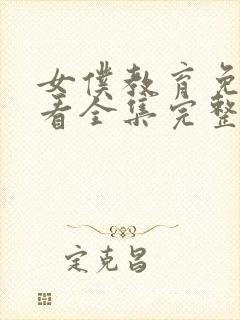 女仆教育免
看全集完整
定克昌